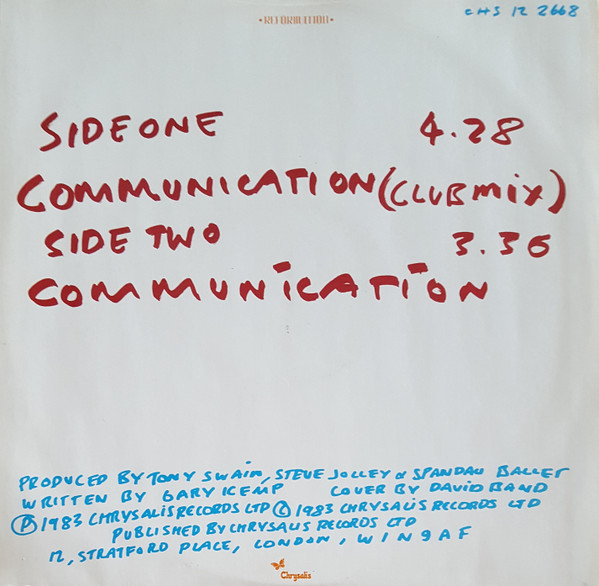 CHS 12 2668
•REFORMATION•
SIDE ONE 4.28
COMMUNICATION (CLUB MIX)
SIDE TWO 3.36
COMMUNICATION
PRODUCED BY TONY SWAIN, STEVE JOLLEY & SPANDAU BALLET
WRITTEN BY GARY KEMP COVER BY DAVID BAND
Ⓟ 1983 CHRYSALIS RECORDS LTD © 1983 CHRYSALIS RECORDS LTD
PUBLISHED BY CHRYSALIS RECORDS LTD
12, STRATFORD PLACE, LONDON, W1N 9AF
Chrysalis